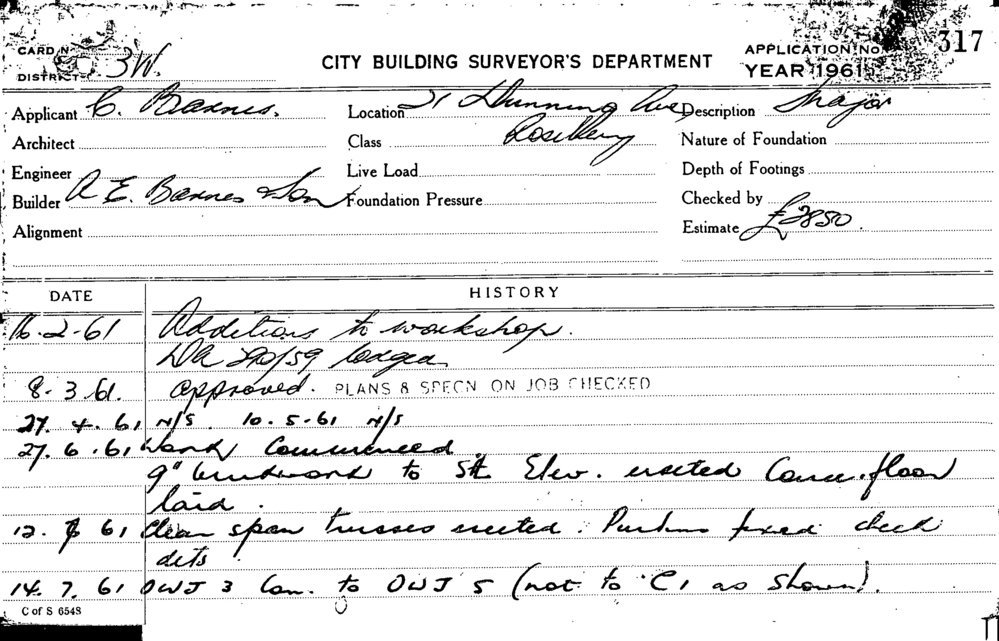 CARD No. 3W.
DISTRICT
CITY BUILDING SURVEYOR'S DEPARTMENT
APPLICATION No. 317
YEAR 1961
Applicant C. Barnes.
Location 21 Dunning Ave
Rosebery
Description Major
Architect
Class
Nature of Foundation
Engineer
Live Load
Depth of Footings
Builder A. E. Barnes & Son
Foundation Pressure
Checked by
Alignment
Estimate £2850.
DATE
HISTORY
16-2-61 Additions to workshop.
DA 290/59 lodged
8. 3. 61. approved. PLANS & SPECN ON JOB CHECKED
27. 4. 61 N/S. 10. 5. 61 N/S
27. 6. 61 Work Commenced
9" brickwork to St. Elev. erected Conc. floor
laid.
12. 7 61 Clean span trusses erected. Purlins fixed check
dets
14. 7. 61 OWJ 3 Con. to OWJ 5 (not to C1 as shown).
C of S 6548